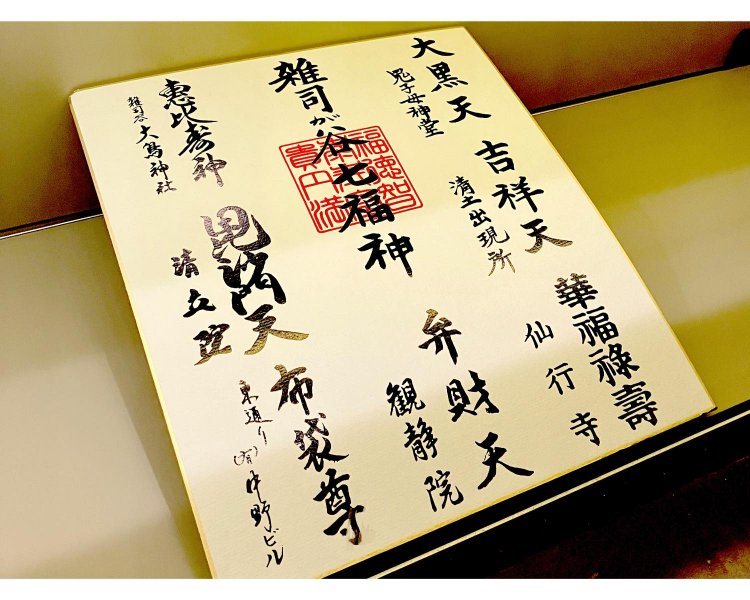 大黒天
鬼子母神堂
吉祥天
清土出現所
華福禄壽
仙行寺
雑司が谷七福神
弁財天
観静院
恵比寿神
雑司ヶ谷
大鳥神社
毘沙門天
清立院
布袋尊
東通り
(有)中野ビル
福徳智
貴円満